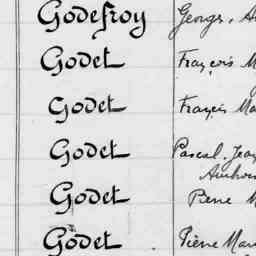 Godefroy Georges, A
Godet François M
Godet Français Ma
Godet Pascal, Jean
Godet René M
Godet Pierre Mar